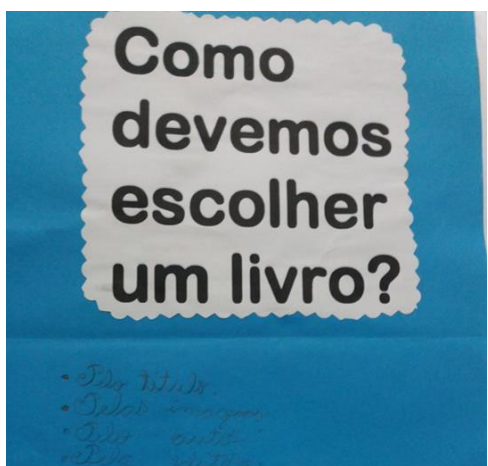 Como
devemos
escolher
um livro?
• Pelo título.
• Pelas imagens.
• Pelo autor.
• Pela